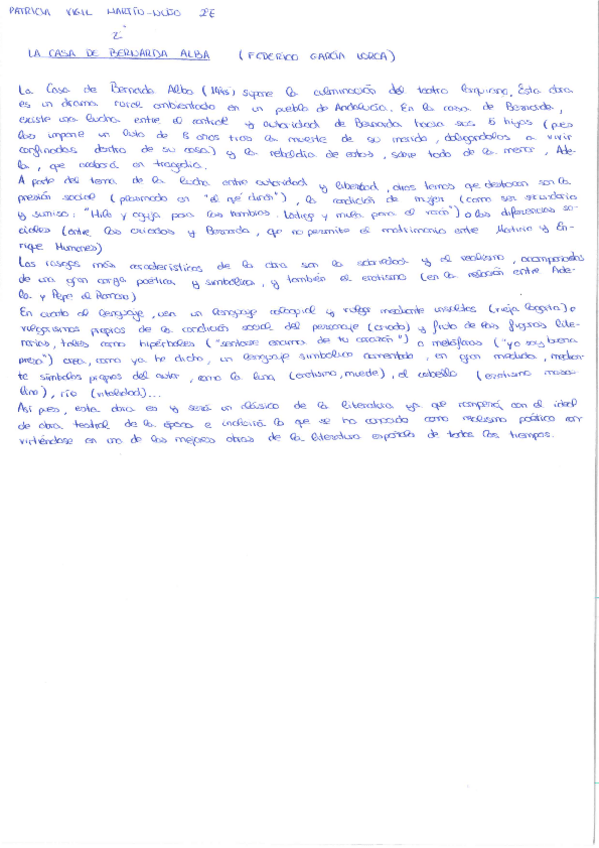 PATRICIA VIGIL MARTÍN-NUÑO 2ºE
LA CASA DE BERNARDA ALBA (FEDERICO GARCÍA LORCA)
La Casa de Bernarda Alba (1945) supone la culminación del teatro lorquiano. Esta obra
es un drama rural ambientado en un pueblo de Andalucía. En la casa de Bernarda,
existe una lucha entre el control y autoridad de Bernarda hacia sus 5 hijas (pues
las impone un luto de 8 años tras la muerte de su marido, obligandolas a vivir
confinadas dentro de su casa) y la rebeldía de estas, sobre todo de la menor, Ade-
la, que acabará en tragedia.
A parte del tema de la lucha entre autoridad y libertad, otros temas que destacan son la
presión social (plasmado en "el qué dirán"), la condición de mujer (como ser secundario
y sumiso: "Hilo y aguja para las hembras. Látigo y mula para el varón") o las diferencias so-
ciales (entre las criadas y Bernarda, que no permite el matrimonio entre Martirio y En-
rique Humanes)
Los rasgos más característicos de la obra son la sobriedad y el realismo, acompañados
de una gran carga poética y simbólica, y también el erotismo (en la relación entre Ade-
la y Pepe el Romano)
En cuanto al lenguaje, usa un lenguaje coloquial y vulgar mediante insultos (vieja lagarta) o
vulgarismos propios de la condición social del personaje (criada) y fruto de las figuras lite-
rarias, tales como hipérboles ("sentarse encima de tu corazón") o metáforas ("yo soy buena
presa") crea, como ya he dicho, un lenguaje simbólico aumentado, en gran medida, median-
te símbolos propios del autor, como la luna (erotismo, muerte), el caballo (erotismo mascu-
lino), río (vitalidad)...
Así pues, esta obra es y será un clásico de la literatura ya que romperá con el ideal
de obra teatral de la época e iniciará lo que se ha conocido como realismo poético con-
virtiéndose en una de las mejores obras de la literatura española de todos los tiempos.